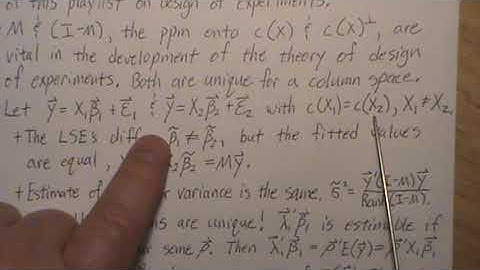 of this playlist on design of experiments.
M & (I-M), the ppm onto c(X) & c(X)^⊥, are
vital in the development of the theory of design
of experiments. Both are unique for a column space.
Let y⃗ = X₁β⃗₁ + ε⃗₁ & y⃗ = X₂β⃗₂ + ε⃗₂ with c(X₁) = c(X₂), X₁ ≠ X₂.
+ The LSE's β̃₁ ≠ β̃₂, but the fitted values
are equal, β̃₂ = My⃗.
+ Estimate of variance is the same, σ̃² = y⃗'(I-M)y⃗ / Rank(I-M).
are unique! λ⃗₁'β⃗₁ is estimable if
some ρ⃗. Then λ⃗₁'β⃗₁ = ρ⃗'E(y⃗) = ρ⃗'X₁β⃗₁